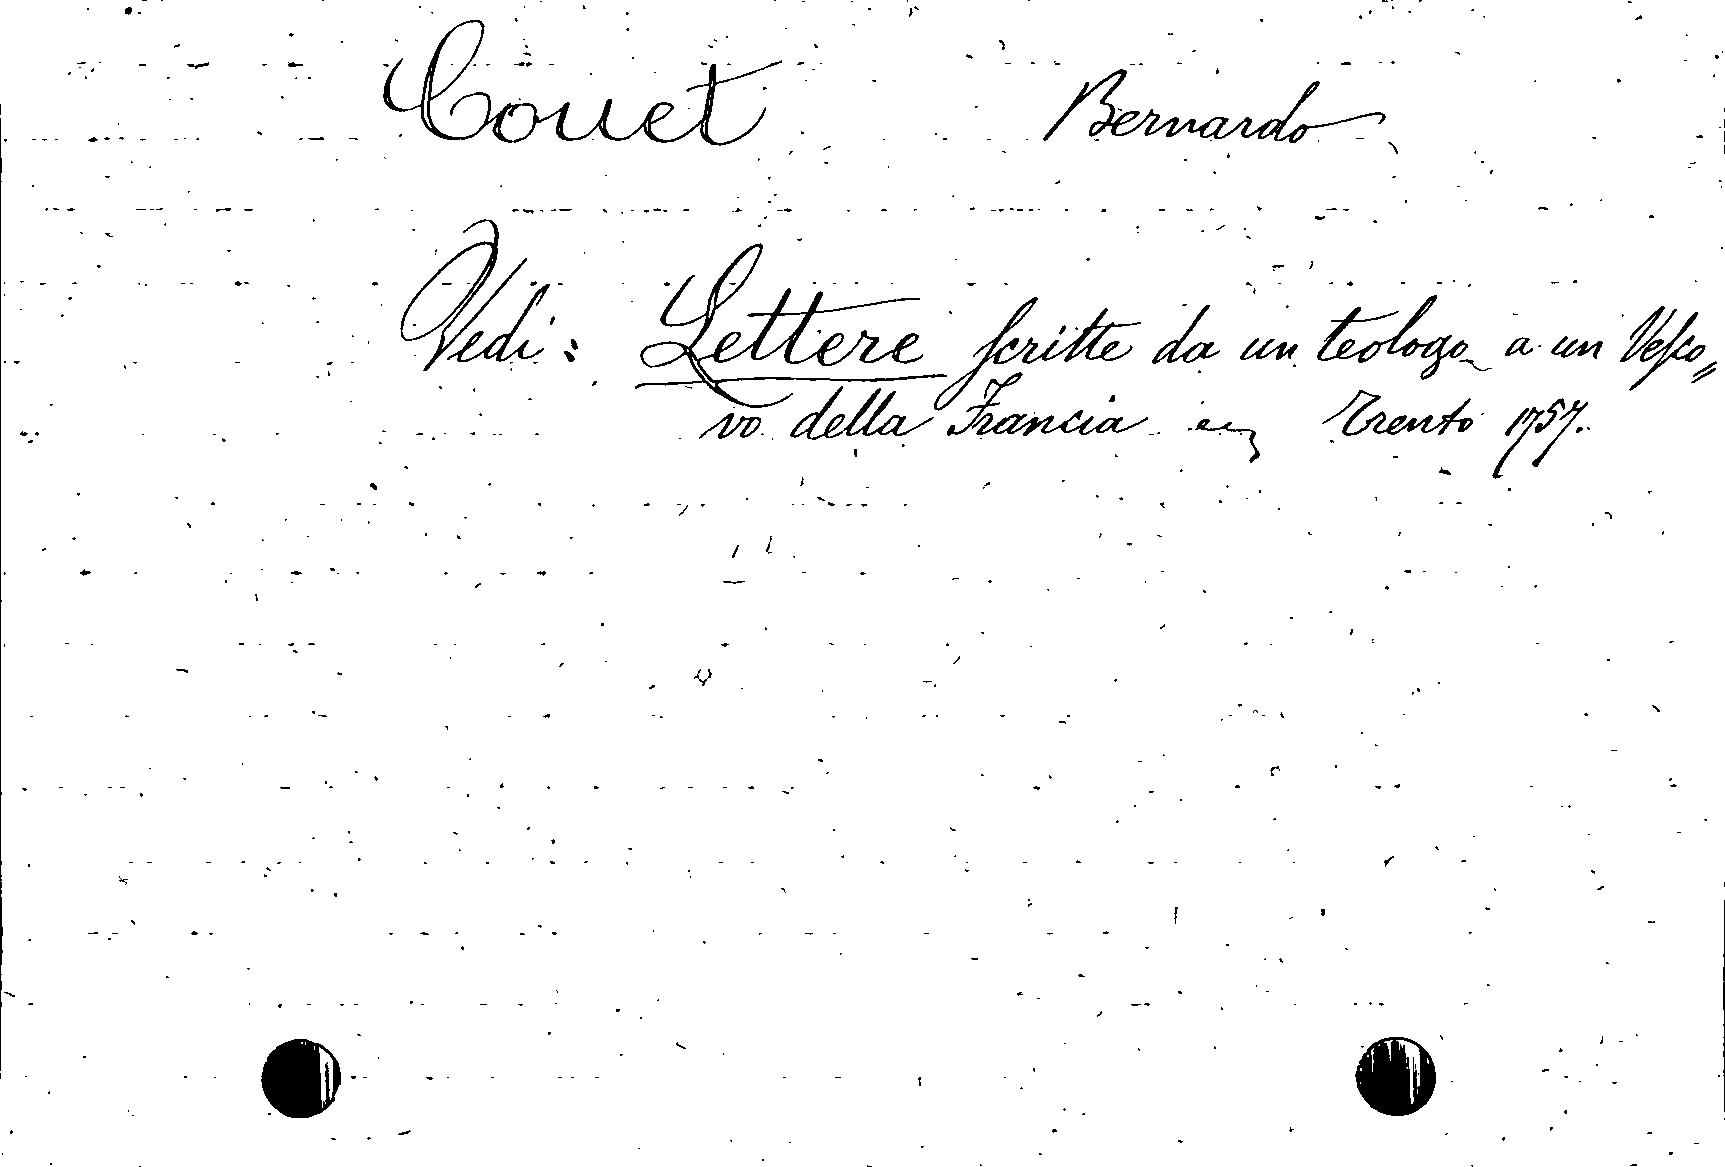 Couet Bernardo
Vedi: Lettere scritte da un teologo a un Vesco„
vo della Francia ecc Trento 1757.